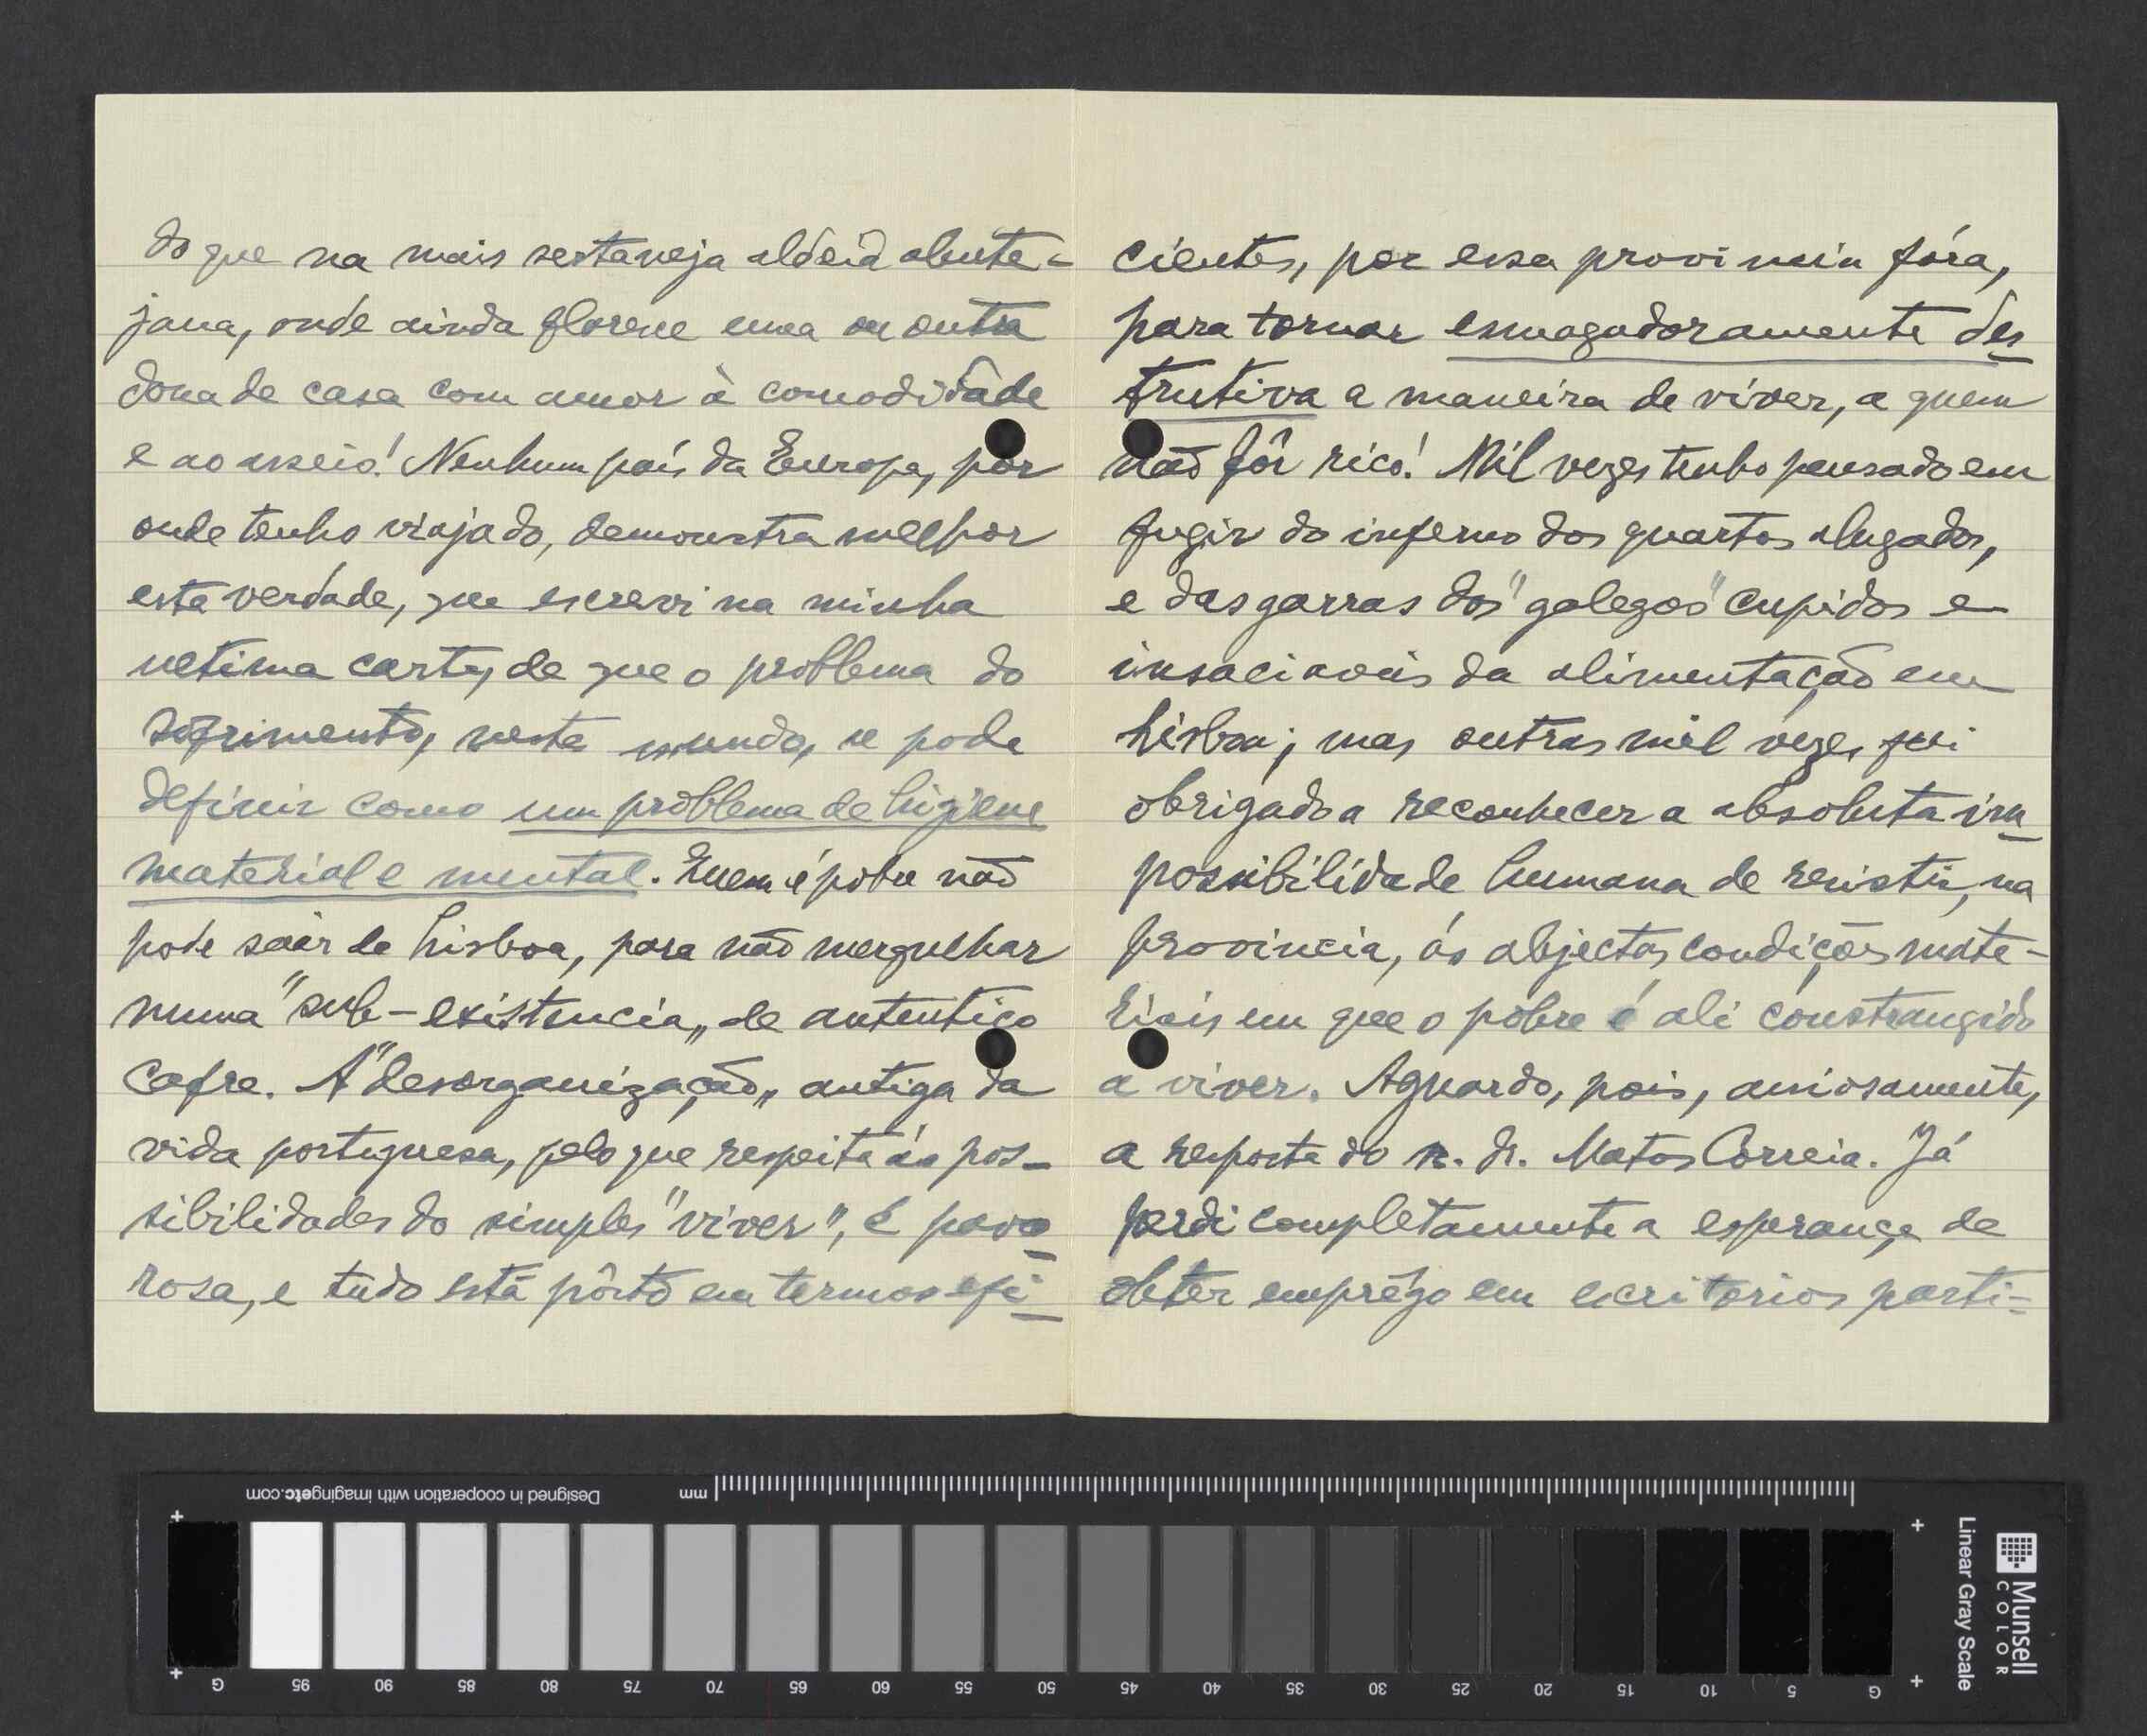 do que na mais sertaneja aldeia alente-
jana, onde ainda floresce uma ou outra
dona de casa com amor à comodidade
e ao asseio! Nenhum país da Europa, por
onde tenho viajado, demonstra melhor
esta verdade, que escrevi na minha
ultima carta, de que o problema do
sofrimento, neste mundo, se pode
definir como um problema de higiene
material e mental. Quem é pobre não
pode saír de Lisboa, para não mergulhar
numa "sub-existencia„ de autentico
cafre. A "desorganização„ antiga da
vida portuguesa, pelo que respeita ás pos-
sibilidades do simples "viver", é pavo-
rosa, e tudo está pôsto em termos efi-
cientes, por essa provincia fóra,
para tornar esmagadoramente des-
trutiva a maneira de viver, a quem
não fôr rico! Mil vezes tenho pensado em
fugir do inferno dos quartos alugados,
e das garras dos "galegos" cupidos e
insaciaveis da alimentação em
Lisboa; mas outras mil vezes fui
obrigado a reconhecer a absoluta im-
possibilidade humana de resistir, na
provincia, ás abjectas condições mate-
riais em que o pobre é ali constrangido
a viver. Aguardo, pois, ansiosamente,
a resposta do sr. dr. Matos Correia. Já
perdi completamente a esperança de
obter emprêgo em escritorios parti-
Designed in cooperation with imagingetc.com
mm
G 95 90 85 80 75 70 65 60 55 50 45 40 35 30 25 20 15 10 5 G
Linear Gray Scale
Munsell
COLOR